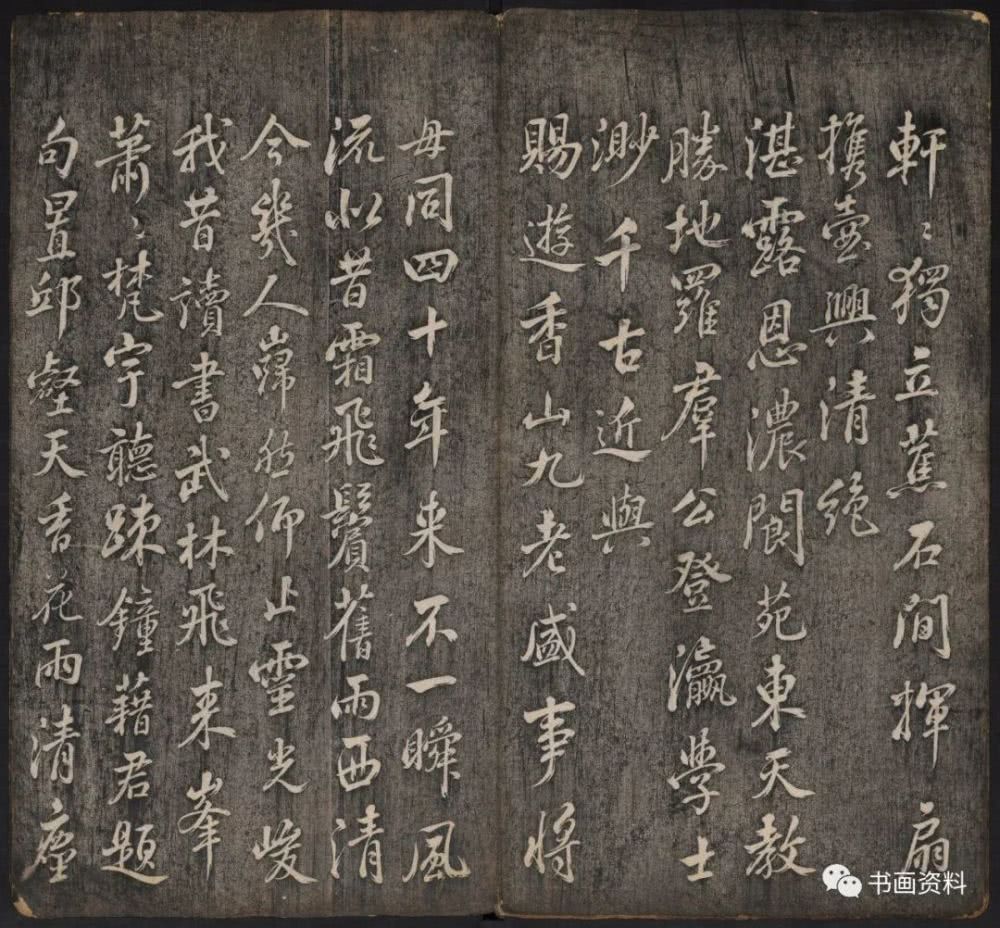 軒〻獨立蕉石間揮扇
攜壺興清絶
湛露恩濃閬苑東天教
勝地羅羣公登瀛學士
渺千古近與
賜遊香山九老盛事將
毋同四十年来不一瞬風
流似昔霜飛鬢舊雨西清
今幾人巋然仰止靈光峻
我昔讀書武林飛来峯
蕭〻梵宇聽踈鐘藉君題
句置邱壑天香花雨清塵
书画资料